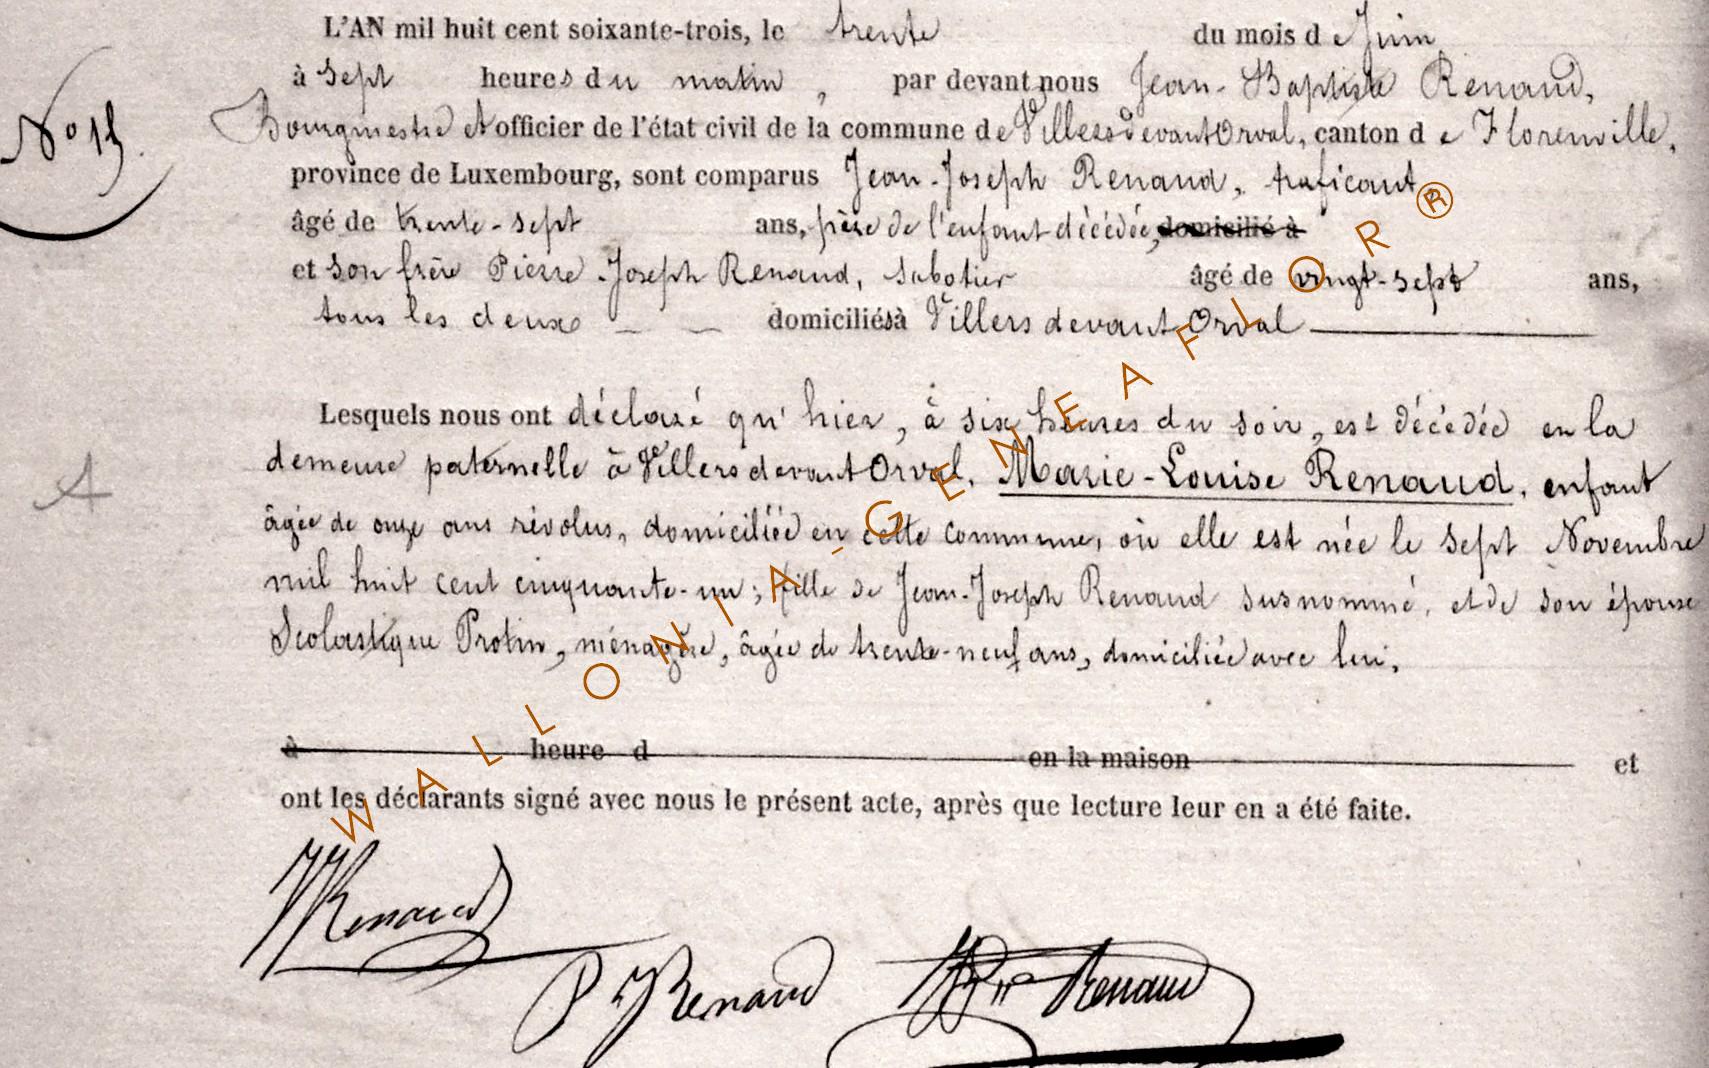 L'AN mil huit cent soixante-trois, le trente du mois de Juin
à Sept heures du matin, par devant nous Jean-Baptiste Renaud,
N° 15.
Bourgmestre et officier de l'état civil de la commune de Villers devant Orval, canton de Florenville,
province de Luxembourg, sont comparus Jean-Joseph Renaud, traficant,
âgé de trente-sept ans, père de l'enfant décédée, domicilié à
et son frère Pierre-Joseph Renaud, sabotier âgé de vingt-sept ans,
tous les deux domiciliés à Villers devant Orval
Lesquels nous ont déclaré qu'hier, à six heures du soir, est décédée en la
demeure paternelle à Villers devant Orval, Marie-Louise Renaud, enfant
A
âgée de onze ans révolus, domiciliée en cette commune, où elle est née le sept Novembre
mil huit cent cinquante-un; fille de Jean-Joseph Renaud susnommé, et de son épouse
Scolastique Protin, ménagère, âgée de trente-neuf ans, domiciliée avec lui,
à heure d en la maison et
ont les déclarants signé avec nous le présent acte, après que lecture leur en a été faite.
JJRenaud
P JRenaud
Renaud
WALLONIA-GENEAFLOR ®